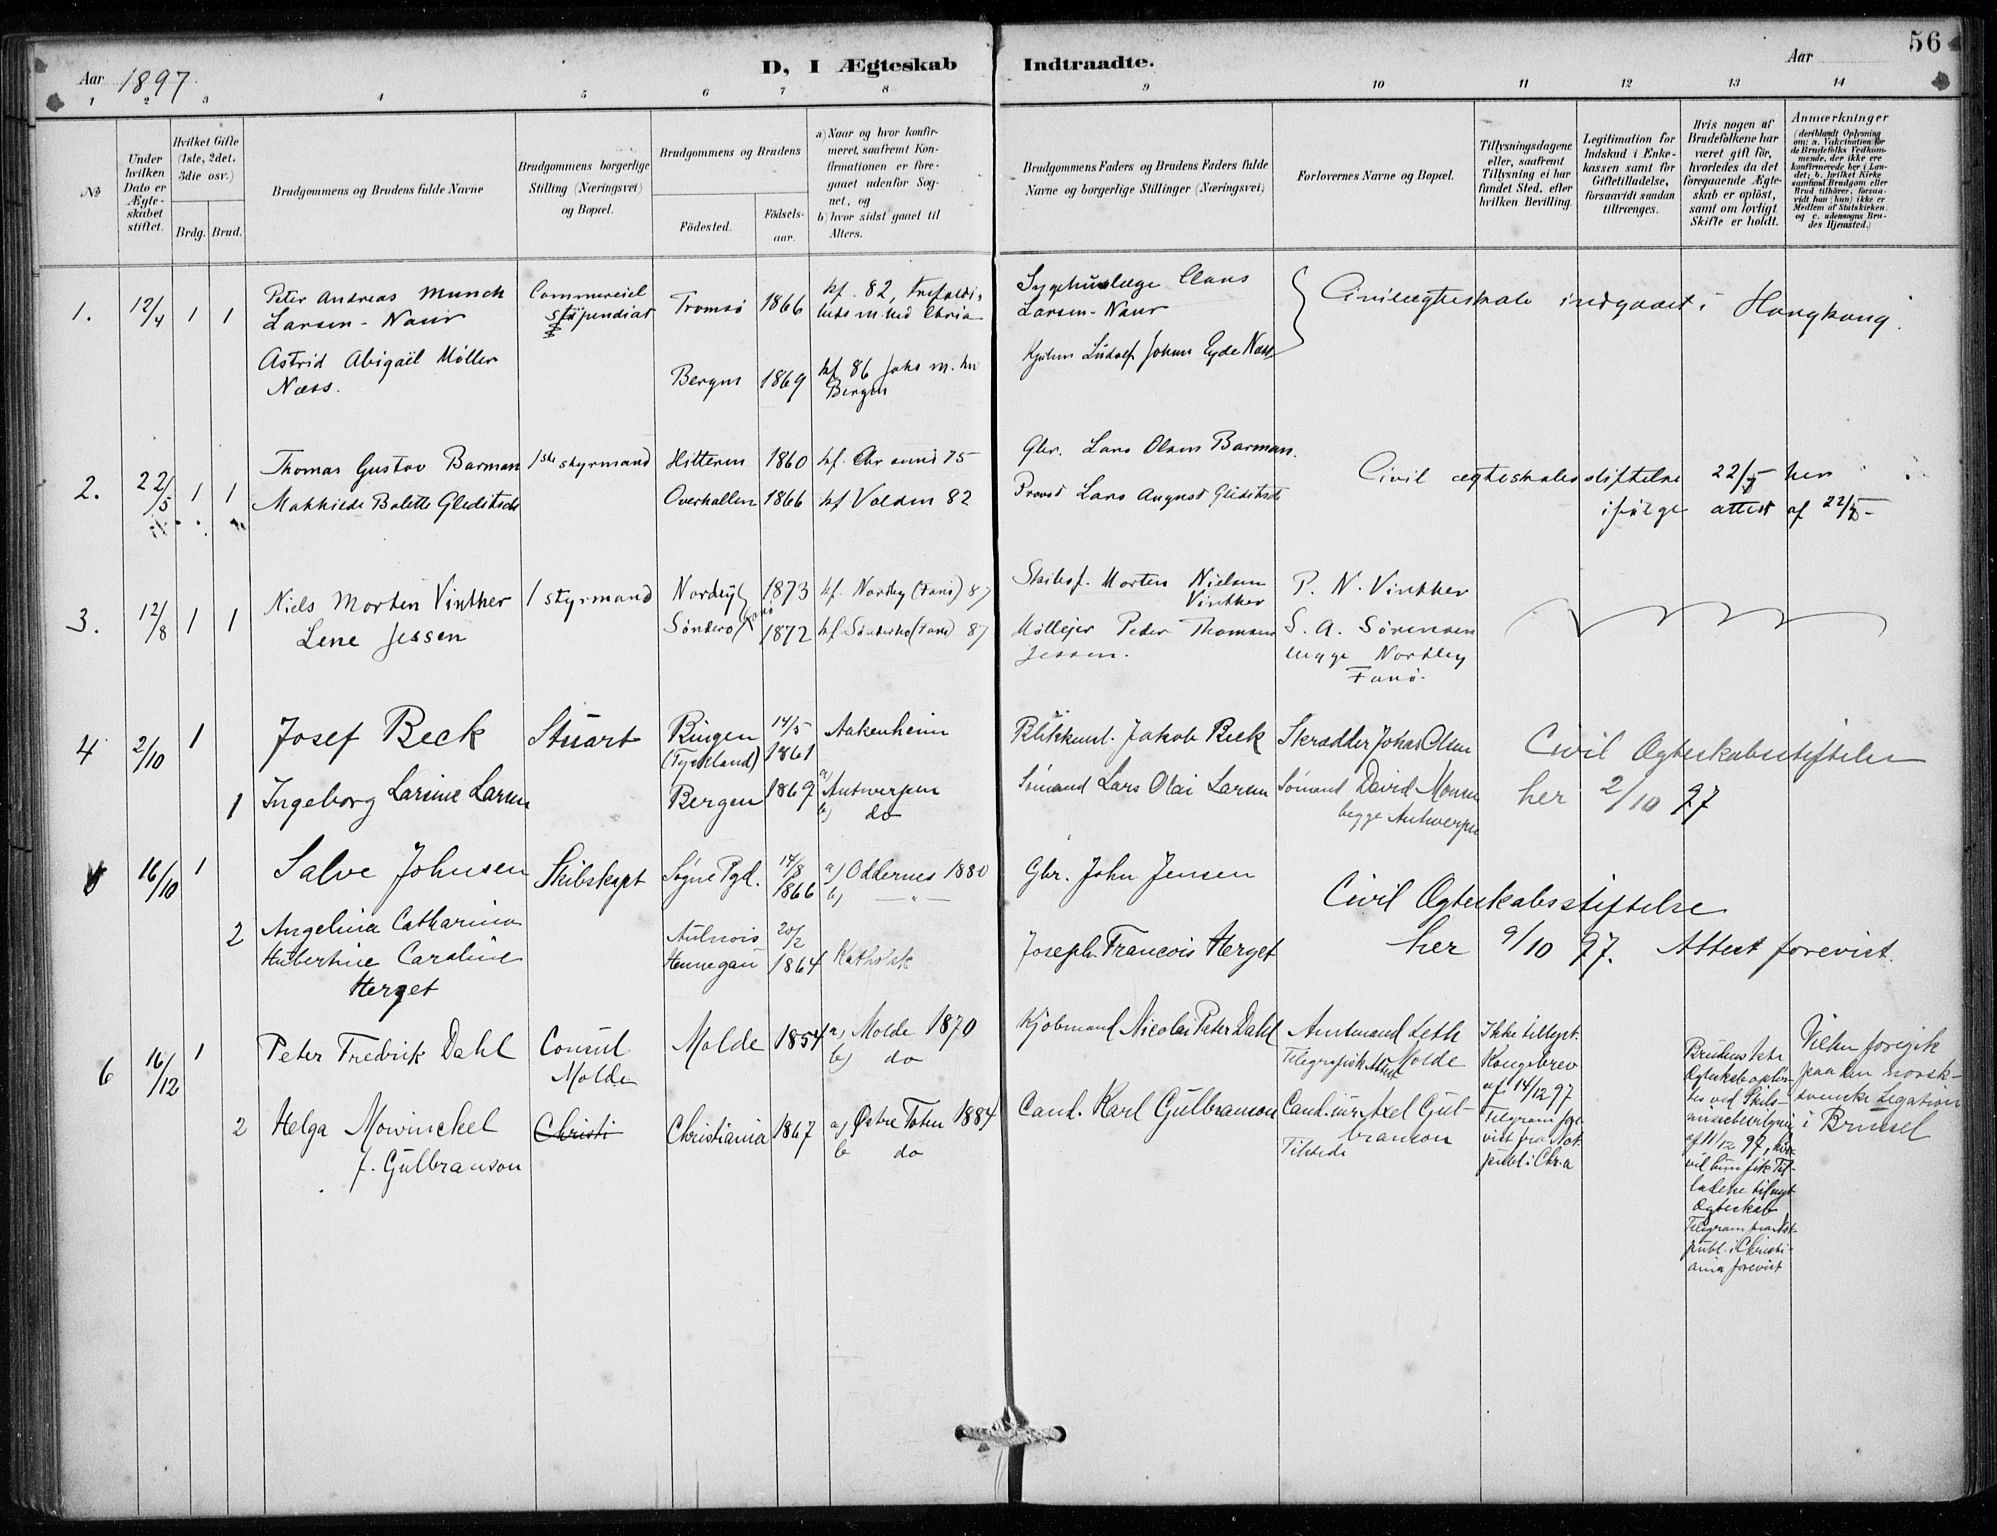 56
Aar 1897
D, I Ægteskab Indtraadte.
Aar
1 2 3 4 5 6 7 8 9 10 11 12 13 14
No
Under hvilken Dato er Ægteskabet stiftet.
Hvilket Gifte (1ste, 2det, 3die osv.)
Brdg. Brud.
Brudgommens og Brudens fulde Navne
Brudgommens borgerlige Stilling (Næringsvei) og Bopæl.
Brudgommens og Brudens
Fødested. Fødselsaar.
a) Naar og hvor konfirmeret, saafremt Konfirmationen er foregaaet udenfor Sognet, og
b) hvor sidst gaaet til Alters.
Brudgommens Faders og Brudens Faders fulde Navne og borgerlige Stillinger (Næringsvei)
Forlovernes Navne og Bopæl.
Tillysningsdagene eller, saafremt Tillysning ei har fundet Sted, efter hvilken Bevilling.
Legitimation for Indskud i Enkekassen samt for Giftetilladelse, forsaavidt saadan tiltrænges.
Hvis nogen af Brudefolkene har været gift før, hvorledes da det foregaaende Ægteskab er opløst, samt om lovligt Skifte er holdt.
Anmærkninger
(deriblandt Oplysning om: a. Vakcination for de Brudefolks Vedkommende, der ikke ere konfirmerede her i Landet; b. hvilket Kirkesamfund Brudgom eller Brud tilhører, forsaavidt han (hun) ikke er Medlem af Statskirken, og c. udensogns Brudes Hjemsted.)
1. 12/4 1 1 Peter Andreas Munch Commerciel Tromsø 1866 kf. 82, Trefoldi- Sygehuslæge Claus
Larsen-Naur stipendiat heds m.hed Chria Larsen-Naur
Civilægteskab indgaaet i Hongkong.
Astrid Abigaël Møller Bergen 1869 kf 86 Johs m. hu Kjøbm Ludolf Johan Eyde Næss
Næss. Bergen
2. 22/5 1 1 Thomas Gustav Barman 1ste styrmand Hitteren 1860 kf. 75 Gbr. Lars Olsen Barman.
Civil ægteskabsstiftelse 22/5 her
Balette Gleditsch Overhallen 1866 kf Volden 82 Provst Lars August Gleditsch
ifølge attest af 22/5
3. 12/8 1 1 Niels Morten Vinther 1 styrmand Nordby 1873 kf. Nordby (Fanø) 87 Skibsf. Morten Nielsen P. N. Vinther
Vinther
Lene Jessen Sønderho Fanø 1872 kf. Sønderho (Fanø) 87 Møllejer Peder Thomsen S. A. Sørensen
Jessen. begge Nordby
Fanø.
4 2/10 1 Josef Beck Stuart Bingen 14/5 Aakenheim Blikkensl. Jakob Beck Skrædder Johas Olsen
(Tyskland) 1861
Civil Ægteskabsstiftelse
1 Ingeborg Larsine Larsen Bergen 1869 a) Antwerpen Sømand Lars Olai Larsen Sømand David Monsen
b) do begge Antwerpen
her 2/10 97
5 16/10 1 Salve Johnsen Skibskapt Søgne Pgd. 14/8 1866 a) Oddernes 1880 Gbr. John Jensen
b) — " —
Civil Ægteskabsstiftelse
2 Angelina Catharina Aulnois 20/2
Hubertine Caroline Hennegau 1864 Katholsk Joseph Francois Herget
Herget
her 9/10 97. Attest forevist.
6 16/12 1 Peter Fredrik Dahl Consul Molde 1854 a) Molde 1870 Kjøbmand Nicolai Peter Dahl Amtmand Leth
Molde b) do Telegrafisk Attest Molde
Ikke tillyst.
Kongebrev
af 14/12 97
Telegram fore-
vist fra Not.
publ. i Chr.a
2 Helga Mowinckel Christi Christiania 1867 a) Østre Toten 1884 Cand. Karl Gulbranson Cand. jur Axel Gul-
f. Gulbranson b do branson
Tilstede
Brudens 1ste
Ægteskab opløs-
tes ved Skils-
missebevilgning
af 11/12 97, hvor-
ved hun fik Til-
ladelse til nyt
Ægteskab
Telegram fra Not.
publ. i Christi-
ania forevist
Vielsen foregik
paa den norsk-
svenske Legation
i Brüssel